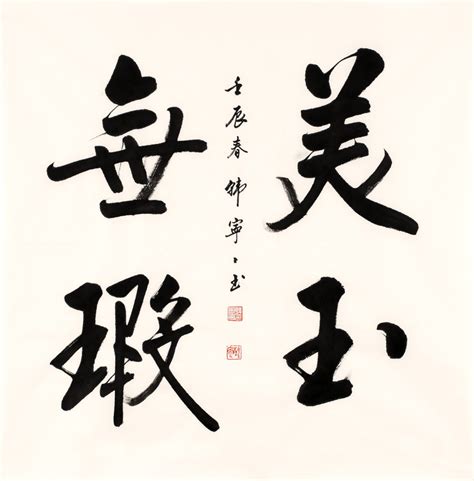 美玉
無瑕
壬辰春韓寧寧書